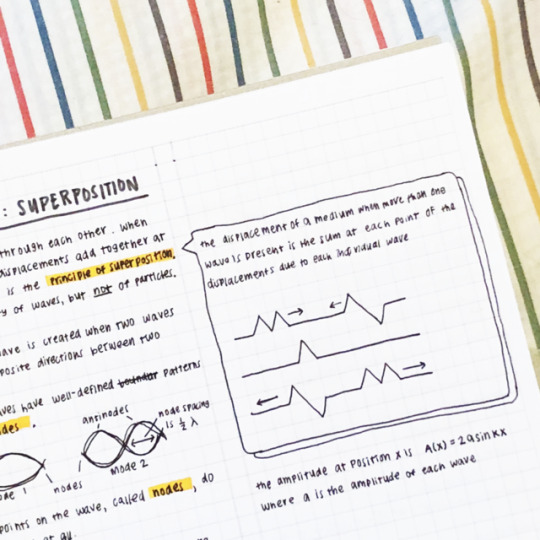 : SUPERPOSITION
through each other. When
displacements add together at
is the principle of superposition.
y of waves, but not of particles.
ave is created when two waves
posite directions between two
aves have well-defined boundar patterns
des.
antinodes
node spacing
is ½ λ
mode 2
ode 1
nodes
points on the wave, called nodes, do
the displacement of a medium when more than one
wave is present is the sum at each point of the
displacements due to each individual wave
the amplitude at position x is A(x) = 2a sin kx
where a is the amplitude of each wave